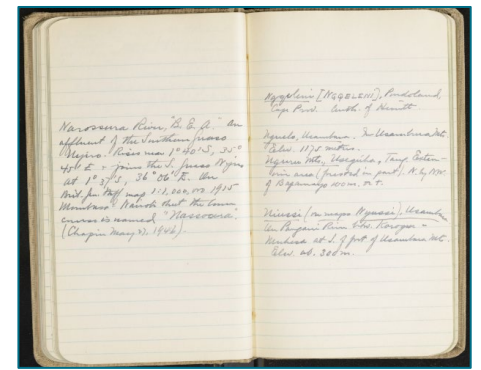 Narossura River, B. E. A. An
affluent of the Southern Guaso
Nyiro. Rises near 1° 40' S, 35°
45' E. & joins the S. Guaso Nyiro
at 1° 37' S, 36° 06' E. On
map 1:1,000,000 1915
Mombasa - Nairobi sheet the lower
course is named "Nassoura."
(Chapin May 21, 1946).
Ngqeleni [NGQELENI], Pondoland
Cape Prov. South of
Nguelo, Usambara. In Usambara Mts.
Elev. 1175 metres.
Nguru Mts., Useguha, Tang. Exten-
area (forested in part). N. by NW.
of Bagamoyo 100 m. o. t.
Niussi (on maps Nyussi), Usambara
On Pangani River btw. Korogwe &
Muhesa at S. of Usambara Mts.
Elev. ab. 300 m.